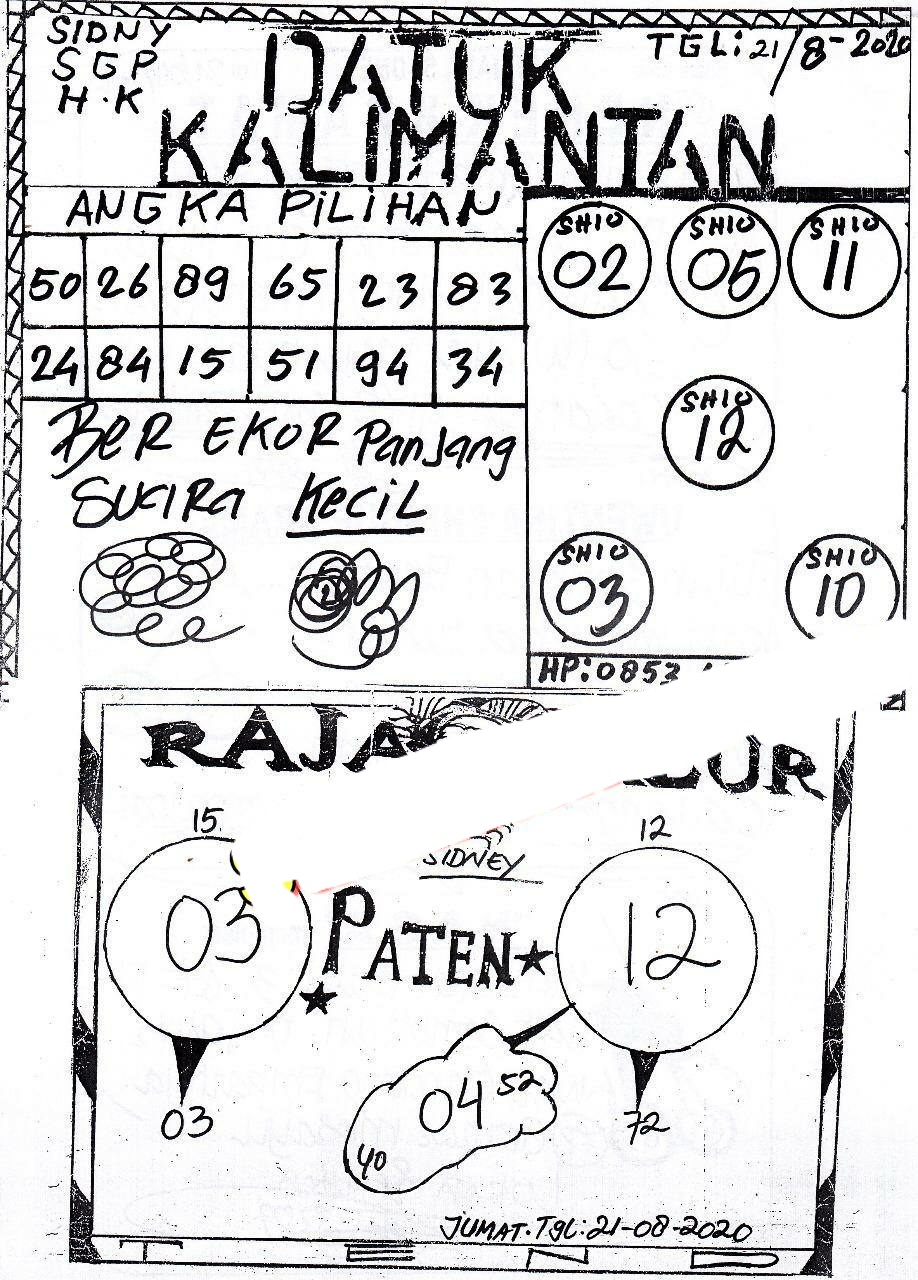 SIDNY
SGP
H.K
TGL: 21/8-2020
DATUK
KALIMANTAN
ANGKA PILIHAN
50 26 89 65 23 83
24 84 15 51 94 34
BER EKOR Panjang
SUARA KeCiL
SHIO
02
SHIO
05
SHIO
11
SHIO
12
SHIO
03
SHIO
10
HP:0853
RAJA
15
12
SIDNEY
03
PATEN
12
04 52
40
03
72
JUMAT.TgL:21-08-2020